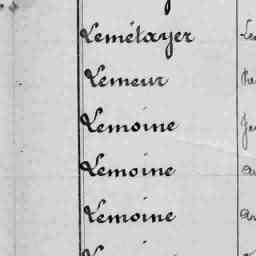 Lemétayer
Lemeur
Lemoine
Lemoine
Lemoine